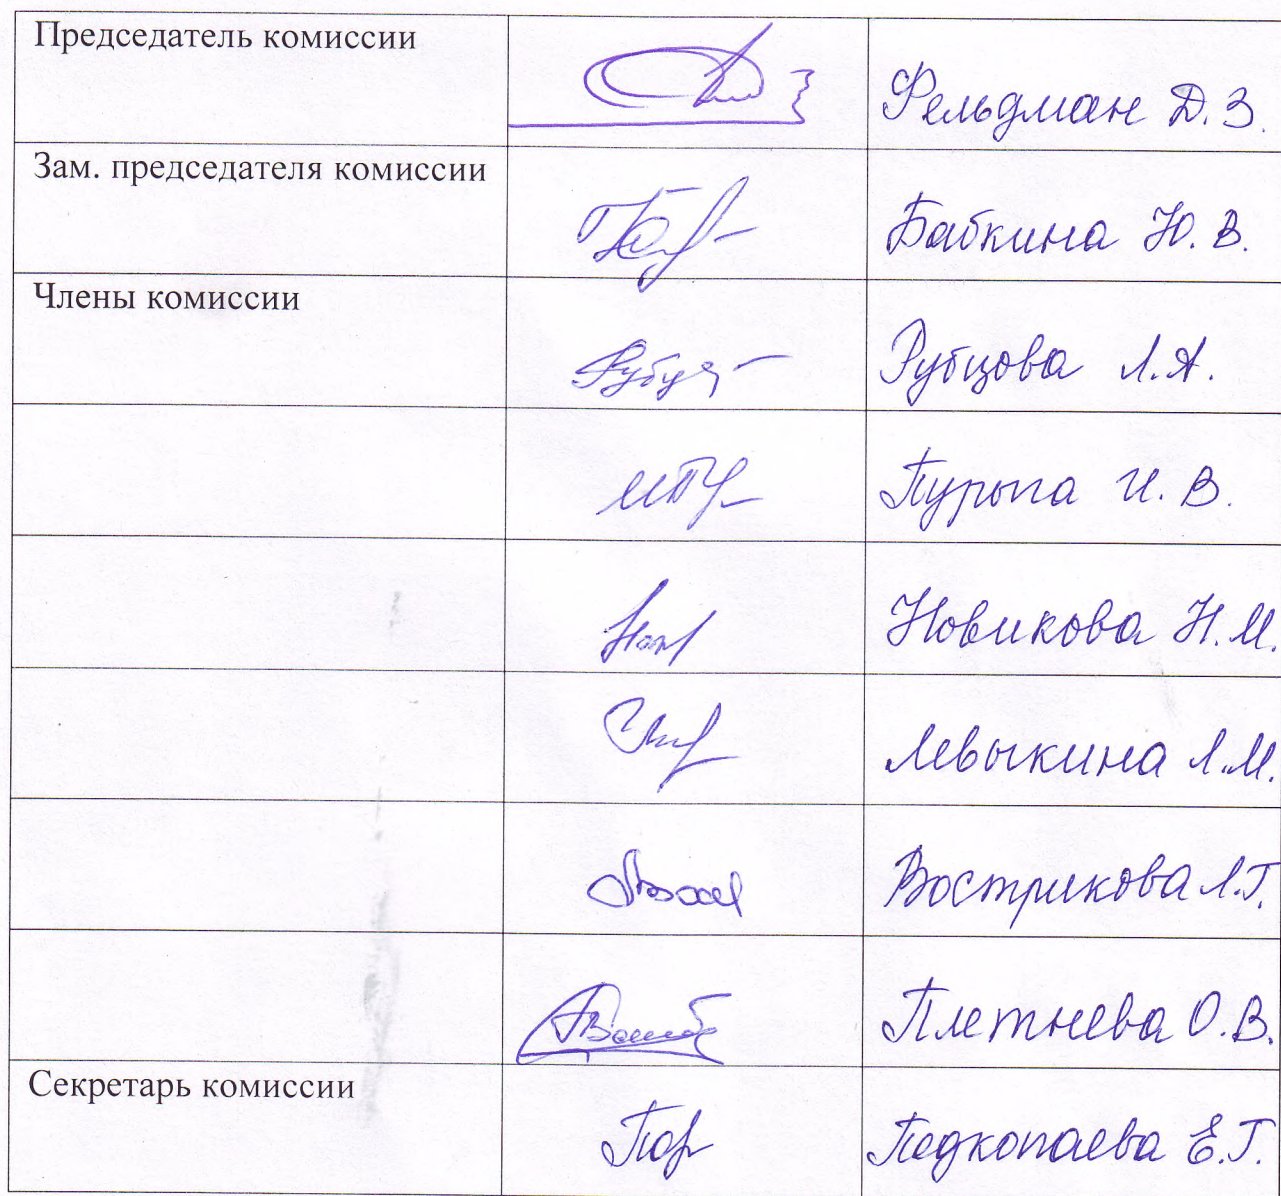 Председатель комиссии
Фельдман Д. З.
Зам. председателя комиссии
Бабкина Ю. В.
Члены комиссии
Рубцова Л.А.
Пурыга И. В.
Новикова Н.М.
Левыкина Л.М.
Вострикова Л.Г.
Плетнева О.В.
Секретарь комиссии
Подкопаева Е.Г.